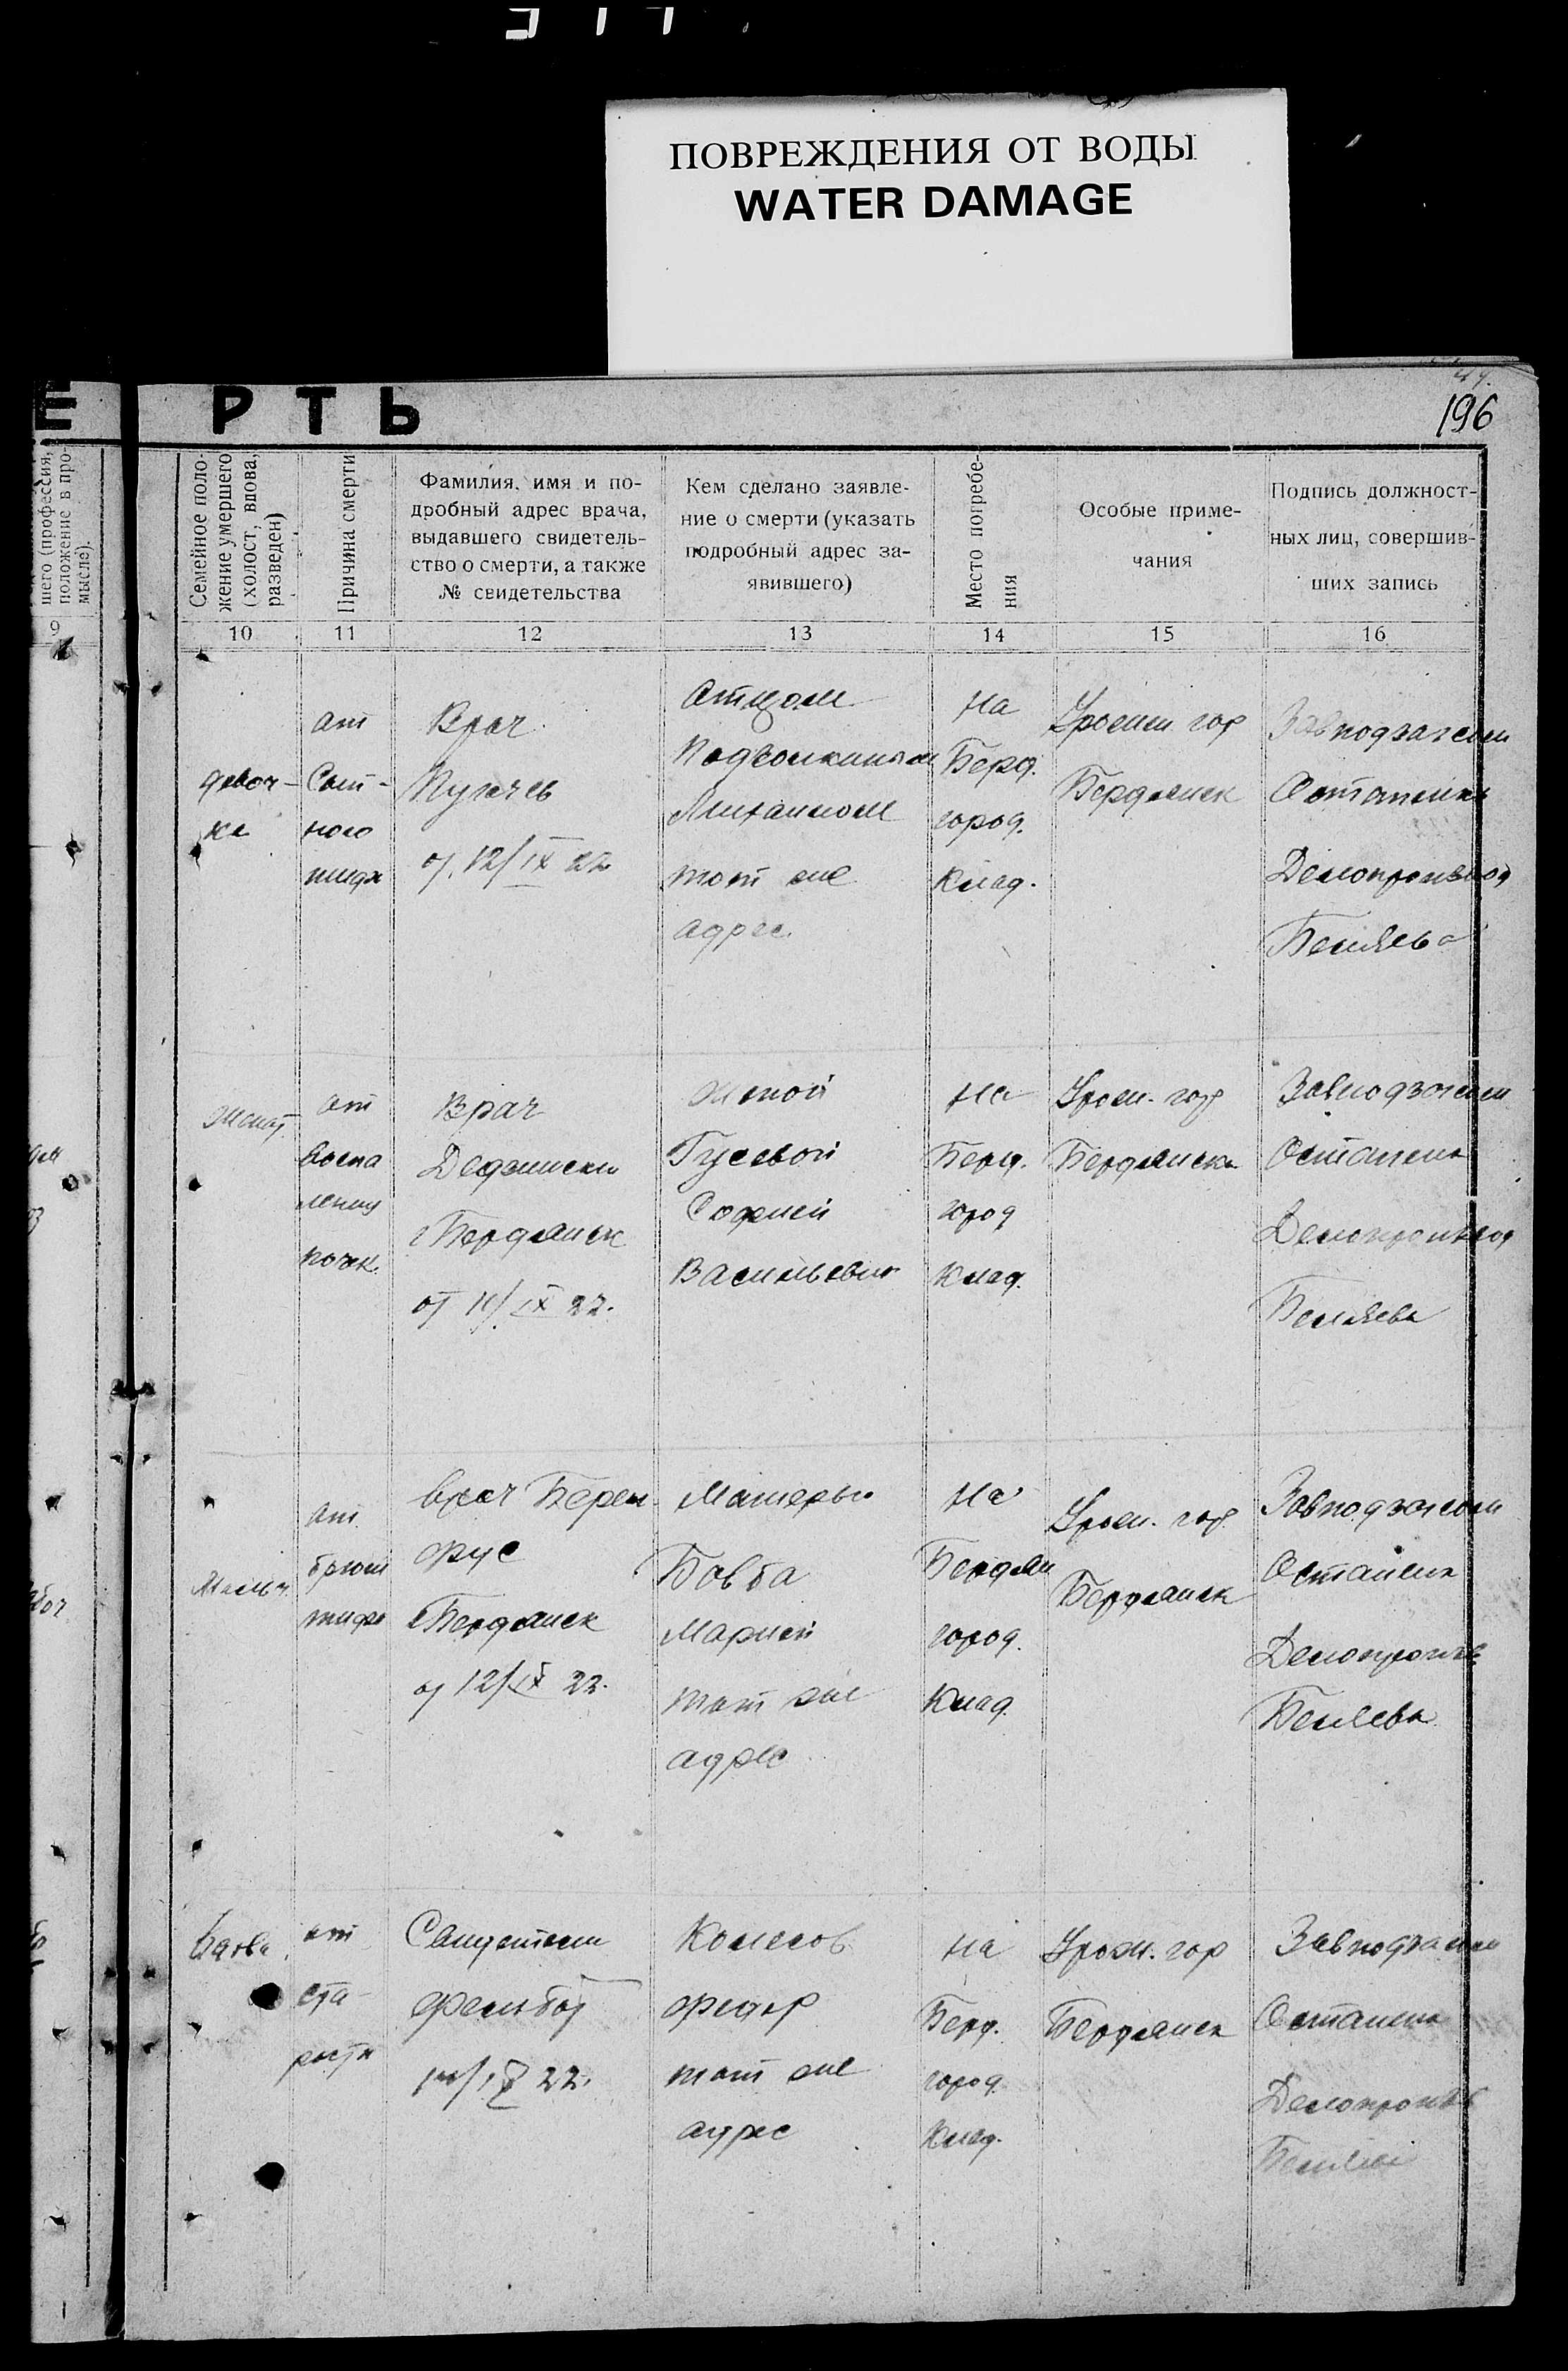 ПОВРЕЖДЕНИЯ ОТ ВОДЫ
WATER DAMAGE
196
Е РТЬ
шего (профессия,
положение в про-
мысле).
Семейное поло-
жение умершего
(холост, вдова,
разведен)
Причина смерти
Фамилия, имя и по-
дробный адрес врача,
выдавшего свидетель-
ство о смерти, а также
№ свидетельства
Кем сделано заявле-
ние о смерти (указать
подробный адрес за-
явившего)
Место погребе-
ния
Особые приме-
чания
Подпись должност-
ных лиц, совершив-
ших запись
9
10
11
12
13
14
15
16
девоч-
ка
от
Сып-
ного
тифа
Врач
Пугачев
от 12/IX 22
Отцом
Михаилом
тот же
адрес
На
Берд.
город.
Клад.
гор
Бердянск
Завподзагсом
Остапенко
Делопроизвод
Беляева
Женат.
от
воспа
ления
почек.
Врач
г Бердянск
от 11/IX 22.
Женой
Гусевой
Софией
На
Берд.
город
Клад.
Урож. гор
Бердянска
Завподзагсом
Остапенко
Делопроизвод
Беляева
Мальч.
от
брюш
тифа
врач Берен-
фус
г Бердянск
от 12/IX 22.
Матерью
Бовба
Марией
тот же
адрес
На
Бердян
город.
Клад.
Урож. гор
Бердянск
Завподзагсом
Остапенко
Делопроизв
Беляева
Вдова
от
ста-
рости
22.
Колесов
Федор
тот же
адрес
На
Берд.
город.
Клад.
Урож. гор
Бердянск
Завподзагсом
Остапенко
Делопроизв
Беляева